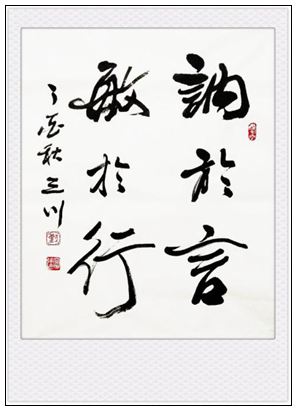 訥於言
敏於行
丁酉秋三川